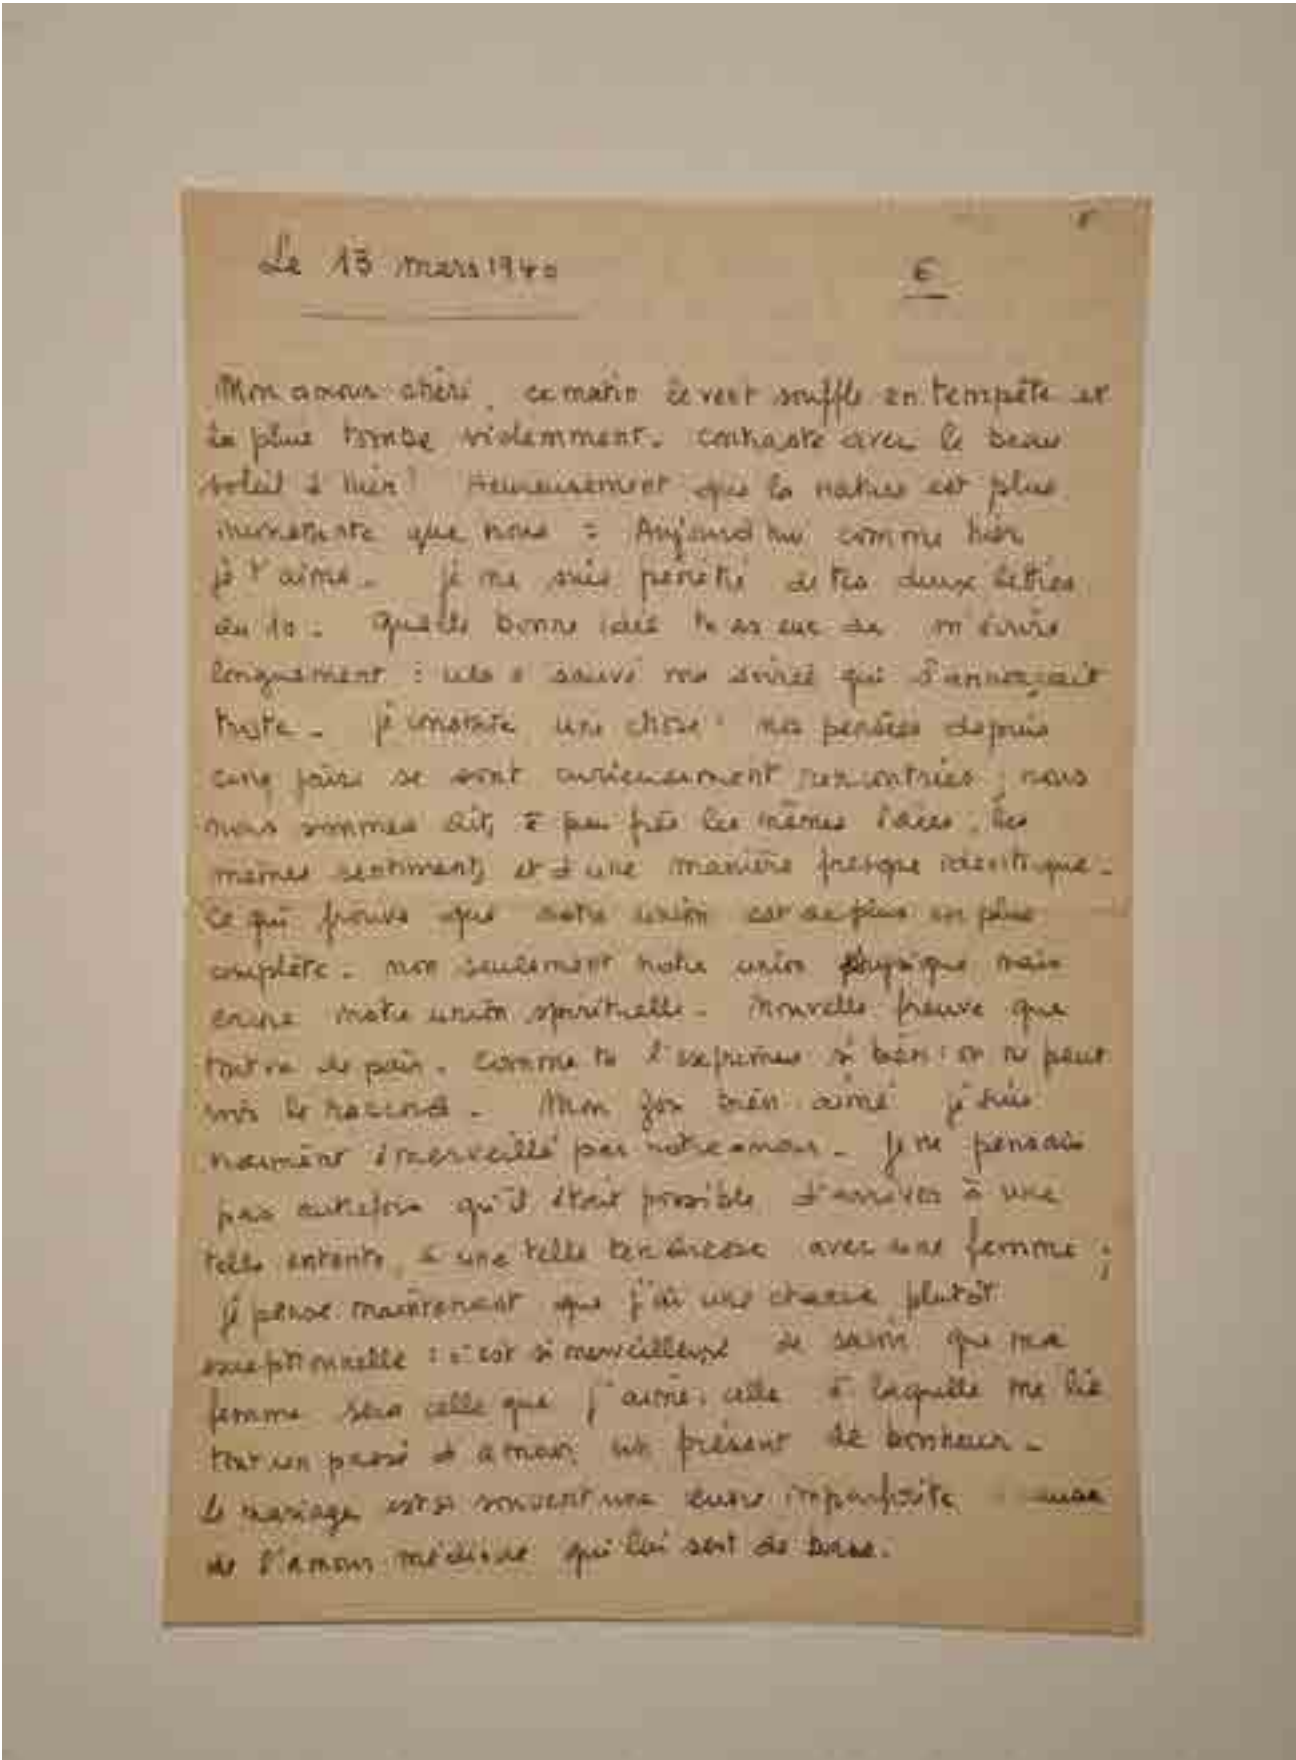 Le 13 mars 1940
6
Mon amour chéri, ce matin le vent souffle en tempête et
la pluie tombe violemment. contraste avec le beau
soleil d'hier! Heureusement que la nature est plus
inconstante que nous : Aujourd'hui comme hier
je t'aime. je me suis pénétré de tes deux lettres
du 10. Quelle bonne idée tu as eue de m'écrire
longuement : cela a sauvé ma soirée qui s'annonçait
triste. je constate une chose : nos pensées depuis
cinq jours se sont curieusement rencontrées ; nous
nous sommes dit, à peu près les mêmes idées, les
mêmes sentiments et d'une manière presque identique.
Ce qui prouve que notre union est de plus en plus
complète. non seulement notre union physique mais
encore notre union spirituelle. Nouvelle preuve que
tout va de pair. comme tu l'exprimes si bien : on ne peut
Mon bien aimé je suis
vraiment émerveillé par notre amour. Je ne pensais
pas autrefois qu'il était possible d'arriver à une
telle entente, à une telle tendresse avec une femme ;
je pense maintenant que j'ai une chance plutôt
exceptionnelle : c'est si merveilleux de savoir que ma
femme sera celle que j'aime, celle à laquelle me lie
tout un passé d'amour, un présent de bonheur.
Le mariage est si souvent une imparfaite cause
de l'amour médiocre qui lui sert de base.